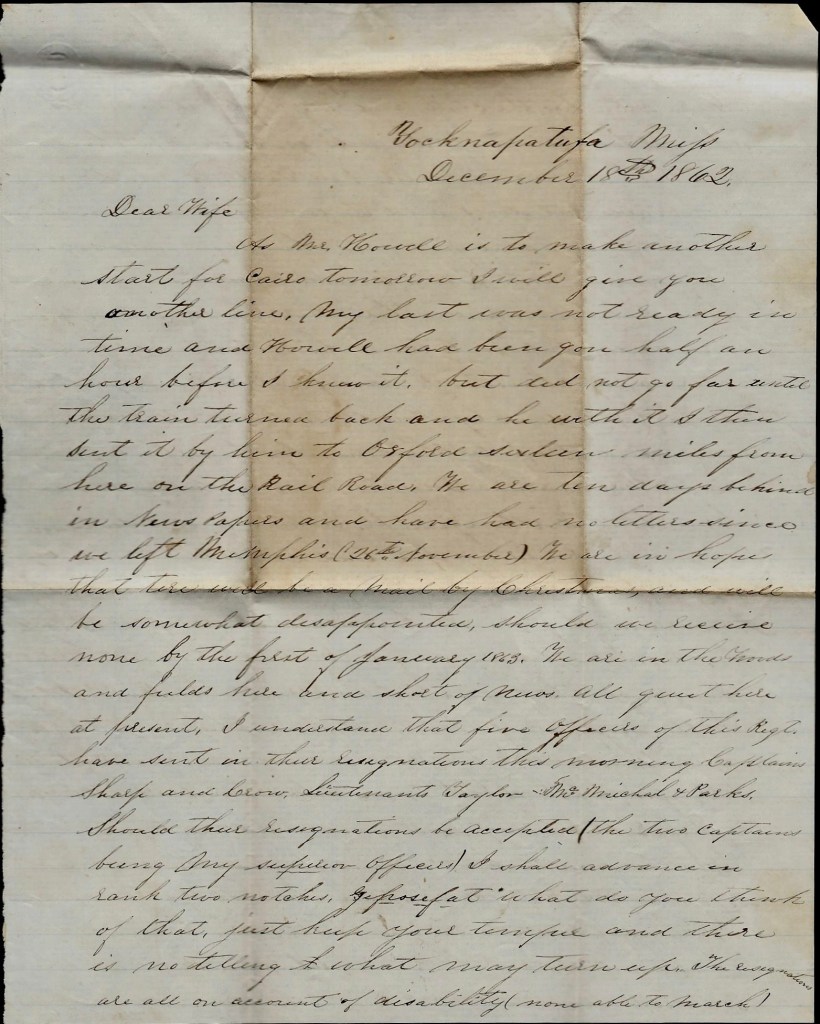 Yocknapatufa Miss
December 18th 1862.
Dear Wife
As Mr. Howell is to make another
start for Cairo tomorrow I will give you
another line, My last was not ready in
time and Howell had been gon half an
hour before I knew it. but did not go far until
the train turned back and he with it I then
sent it by him to Oxford sixteen miles from
here on the Rail Road. We are ten days behind
in News Papers and have had no letters since
we left Memphis (26th November) We are in hopes
that tere will be a Mail by Christmas, and will
be somewhat disappointed, should we receive
none by the first of January 1863. We are in the Woods
and fields here and short of News. All quiet here
at present, I understand that five officers of this Regt.
have sent in their resignations this morning Captains
Sharp and Crow, Lieutenants Taylor Mc Michal & Parks.
Should their resignations be accepted (the two Captains
being my superior officers) I shall advance in
rank two notches, what do you think
of that, just keep your temper and there
is no telling what may turn up. The resignations
are all on account of disability (none able to march)